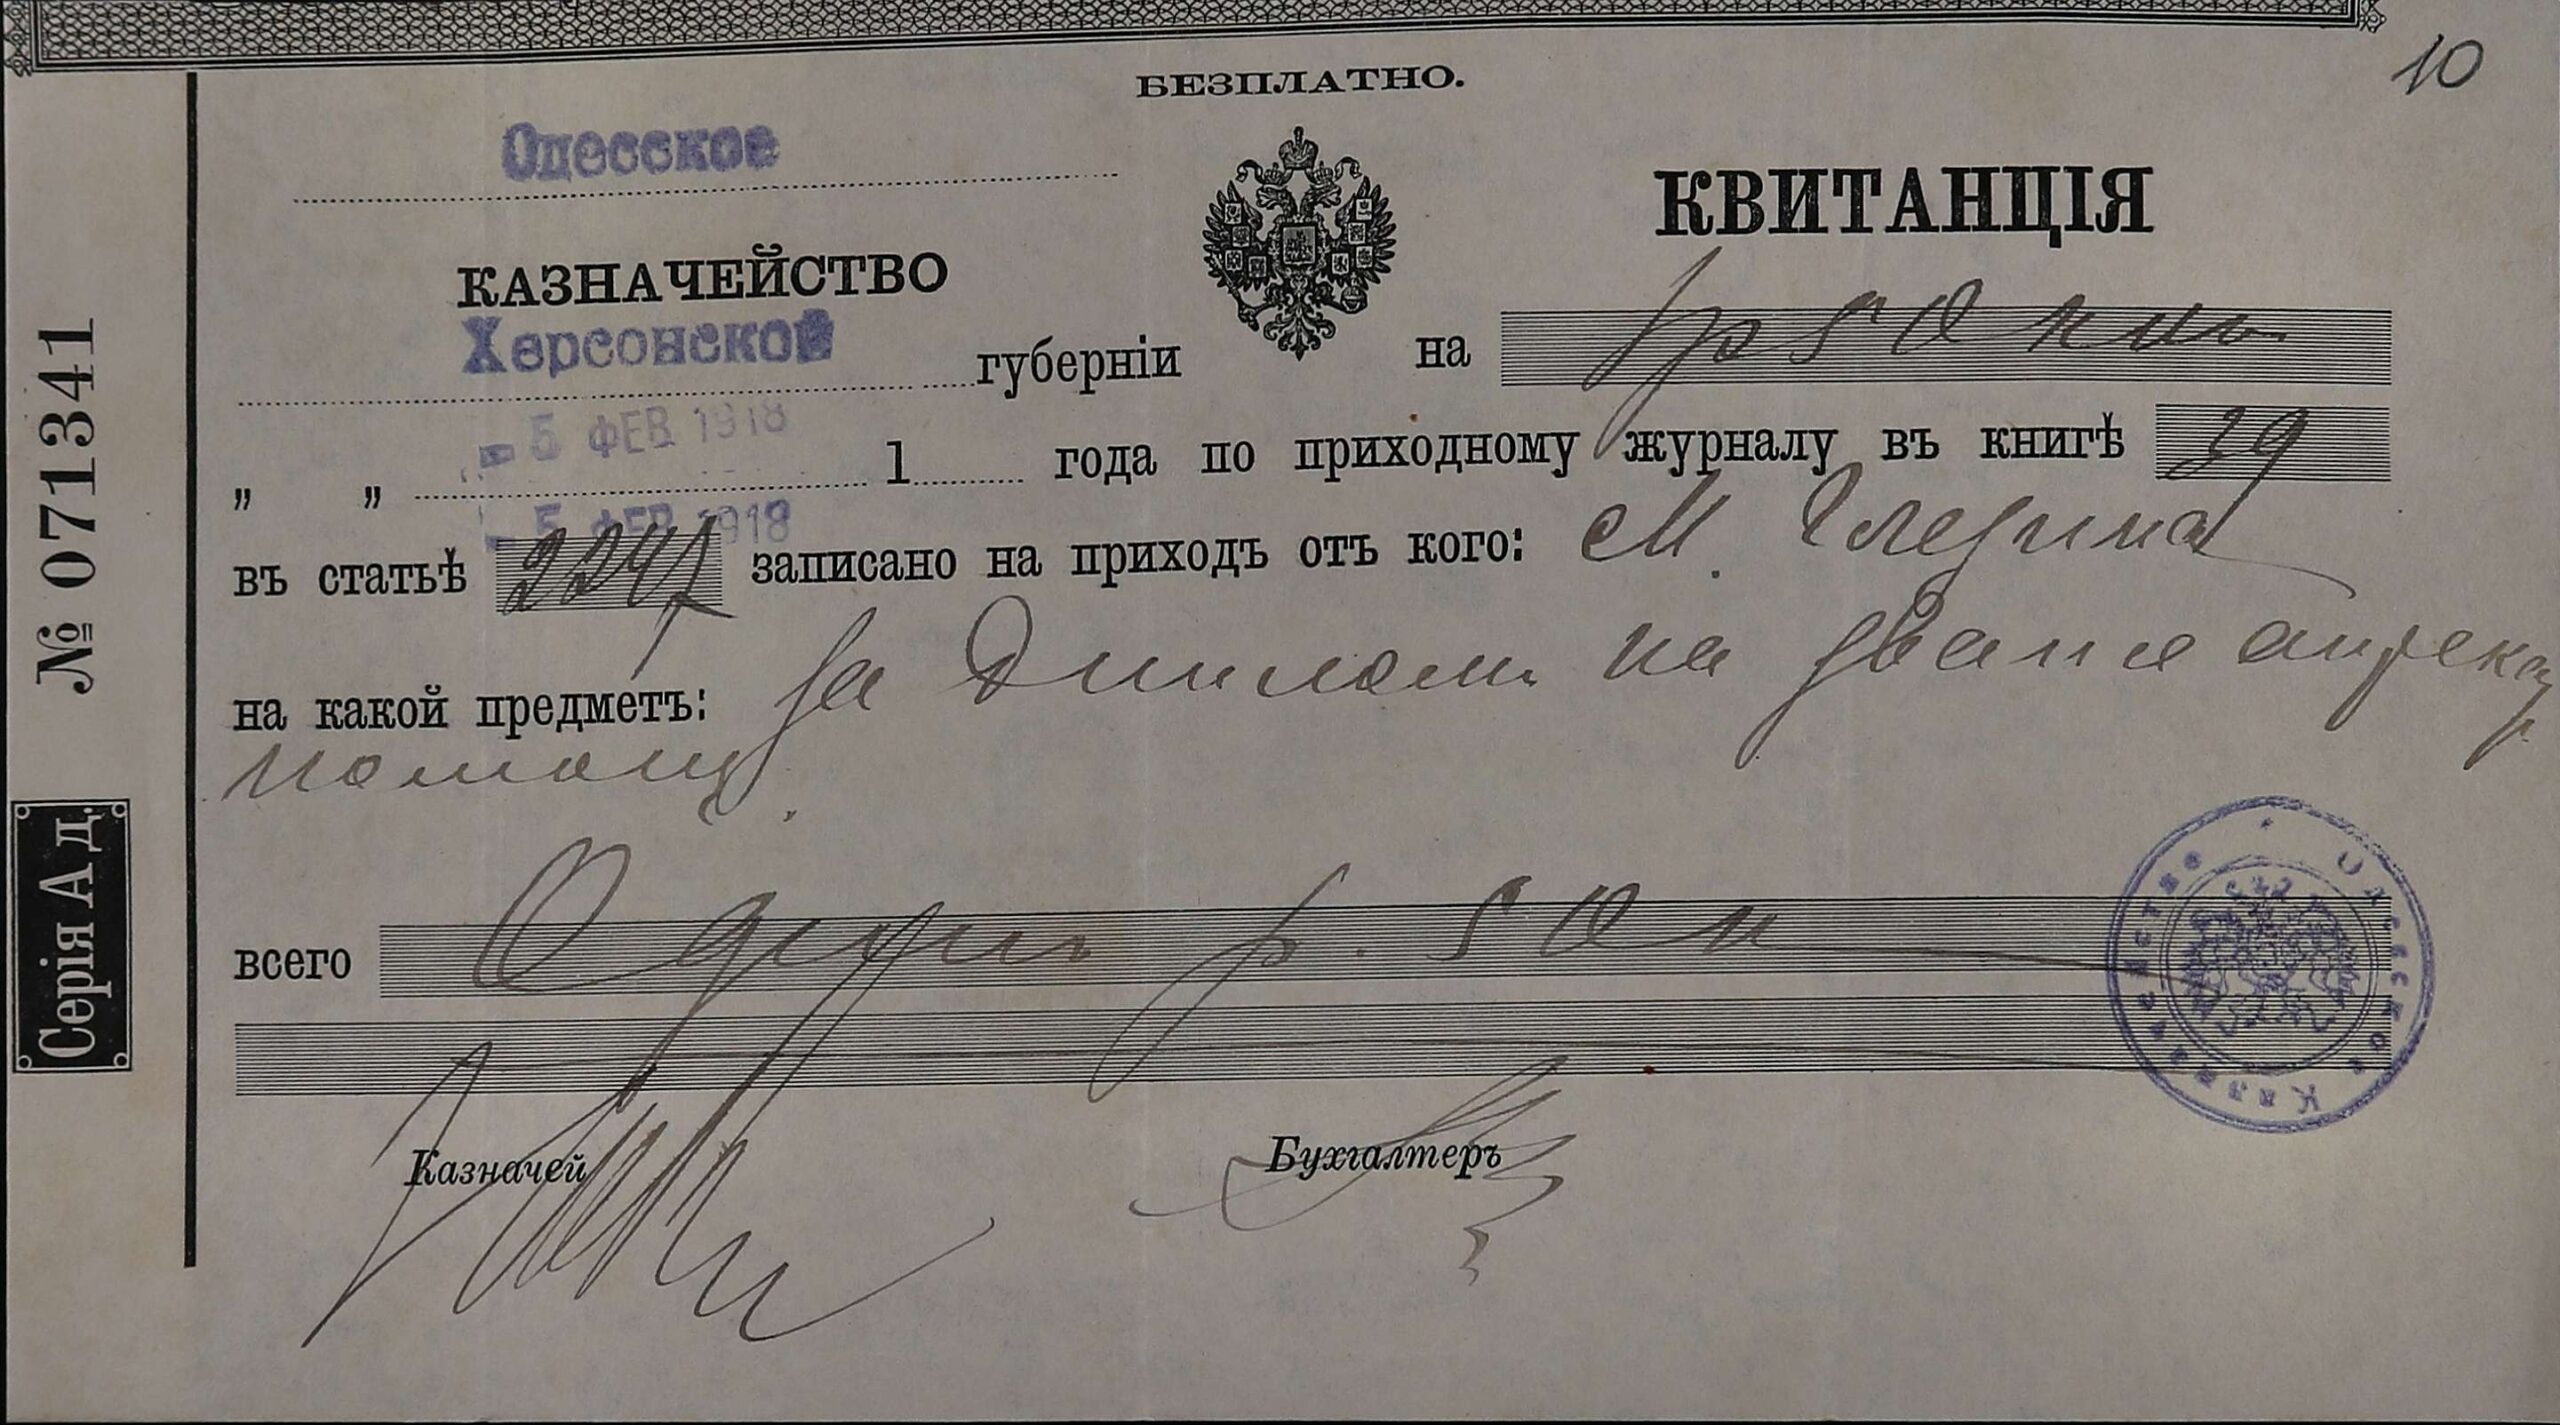 10
БЕЗПЛАТНО.
Одесское
КАЗНАЧЕЙСТВО
Херсонской губерніи
КВИТАНЦІЯ
на 1р 50 коп
- 5 ФЕВ 1918
" " 1 года по приходному журналу въ книгѣ 29
- 5 ФЕВ 1918
въ статьѣ 2247 записано на приходъ отъ кого: М.
на какой предметъ: за Диплом на званіе аптекар
помощ.
всего Одинъ р. 50 к
Казначей Бухгалтеръ
Одесское Казначейство
№ 071341
Серія А д.